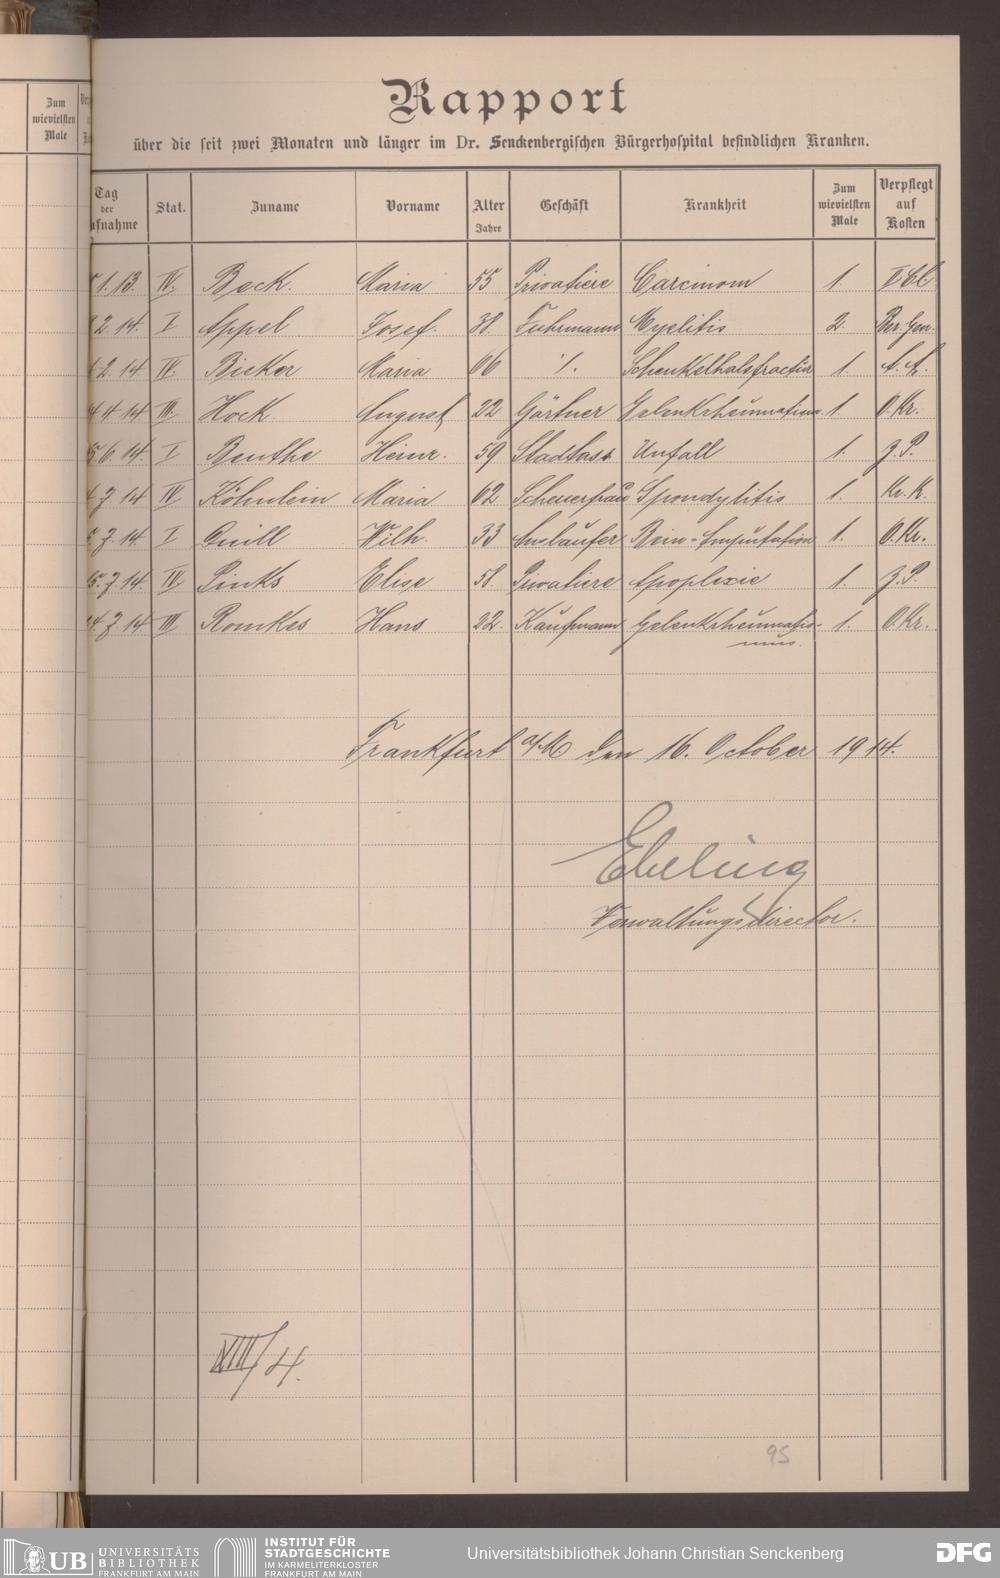 Zum
wievielsten
Male
Rapport
über die seit zwei Monaten und länger im Dr. Senckenbergischen Bürgerhospital befindlichen Kranken.
Tag der ufnahme Stat. Zuname Vorname Alter Jahre Geschäft Krankheit Zum wievielsten Male Verpflegt auf Kosten
1. 13. IV. Beck. Maria 55 Privatiere Carcinom 1.
2. 14. I Appel Josef. 38. Fuhrmann Myelitis 2. Ber. Gen.
2. 14 IV. Bicker Maria 66 ./. Schenkelhalsfractur 1. A. A.
4 14 III. Hock August 22 Gärtner Gelenkrheumatismus 1. O. Kr.
6 14. I Benthe Heinr. 59 Stadtass. Unfall 1. z. P.
7 14 IV Köhnlein Maria 62 Scheuerfrau Spondylitis 1. Kr. K.
7. 14. I Quill Wilh. 33 Ausläufer Bein-Amputation 1. O. Kr.
5. 7 14. IV Pinks Elise 58. Privatiere Apoplexie 1. z. P.
24. 7. 14 III Romkes Hans 22. Kaufmann Gelenkrheumatis- 1. O. Kr.
mus.
Frankfurt a/M den 16. October 1914.
Ebeling
Verwaltungsdirector.
XIII/4.
95
UB UNIVERSITÄTS
BIBLIOTHEK
FRANKFURT AM MAIN
INSTITUT FÜR
STADTGESCHICHTE
IM KARMELITERKLOSTER
FRANKFURT AM MAIN
Universitätsbibliothek Johann Christian Senckenberg
DFG